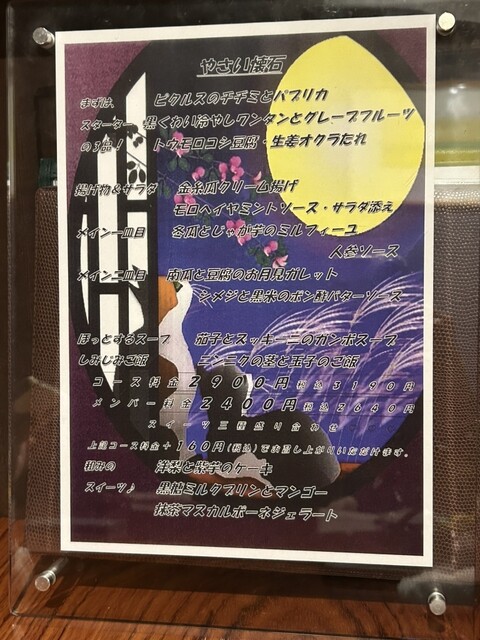 やさい懐石
まずは、 ピクルスのチヂミとパプリカ
スターター 黒くわい冷やしワンタンとグレープフルーツ
の3品！ トウモロコシ豆腐・生姜オクラたれ
揚げ物&サラダ 金糸瓜クリーム揚げ
モロヘイヤミントソース・サラダ添え
メイン一皿目 冬瓜とじゃが芋のミルフィーユ
人参ソース
メイン二皿目 南瓜と豆腐のお月見ガレット
シメジと黒米のポン酢バターソース
ほっとするスープ 茄子とズッキーニのガンボスープ
しみじみご飯 ニンニクの茎と玉子のご飯
コース料金2900円税込3190円
メンバー料金2400円税込2640円
スイーツ三種盛り合わせ
上記コース料金+160円(税込)でお召し上がりいただけます。
和みの 洋梨と紫芋のケーキ
スイーツ♪ 黒糖ミルクプリンとマンゴー
抹茶マスカルポーネジェラート